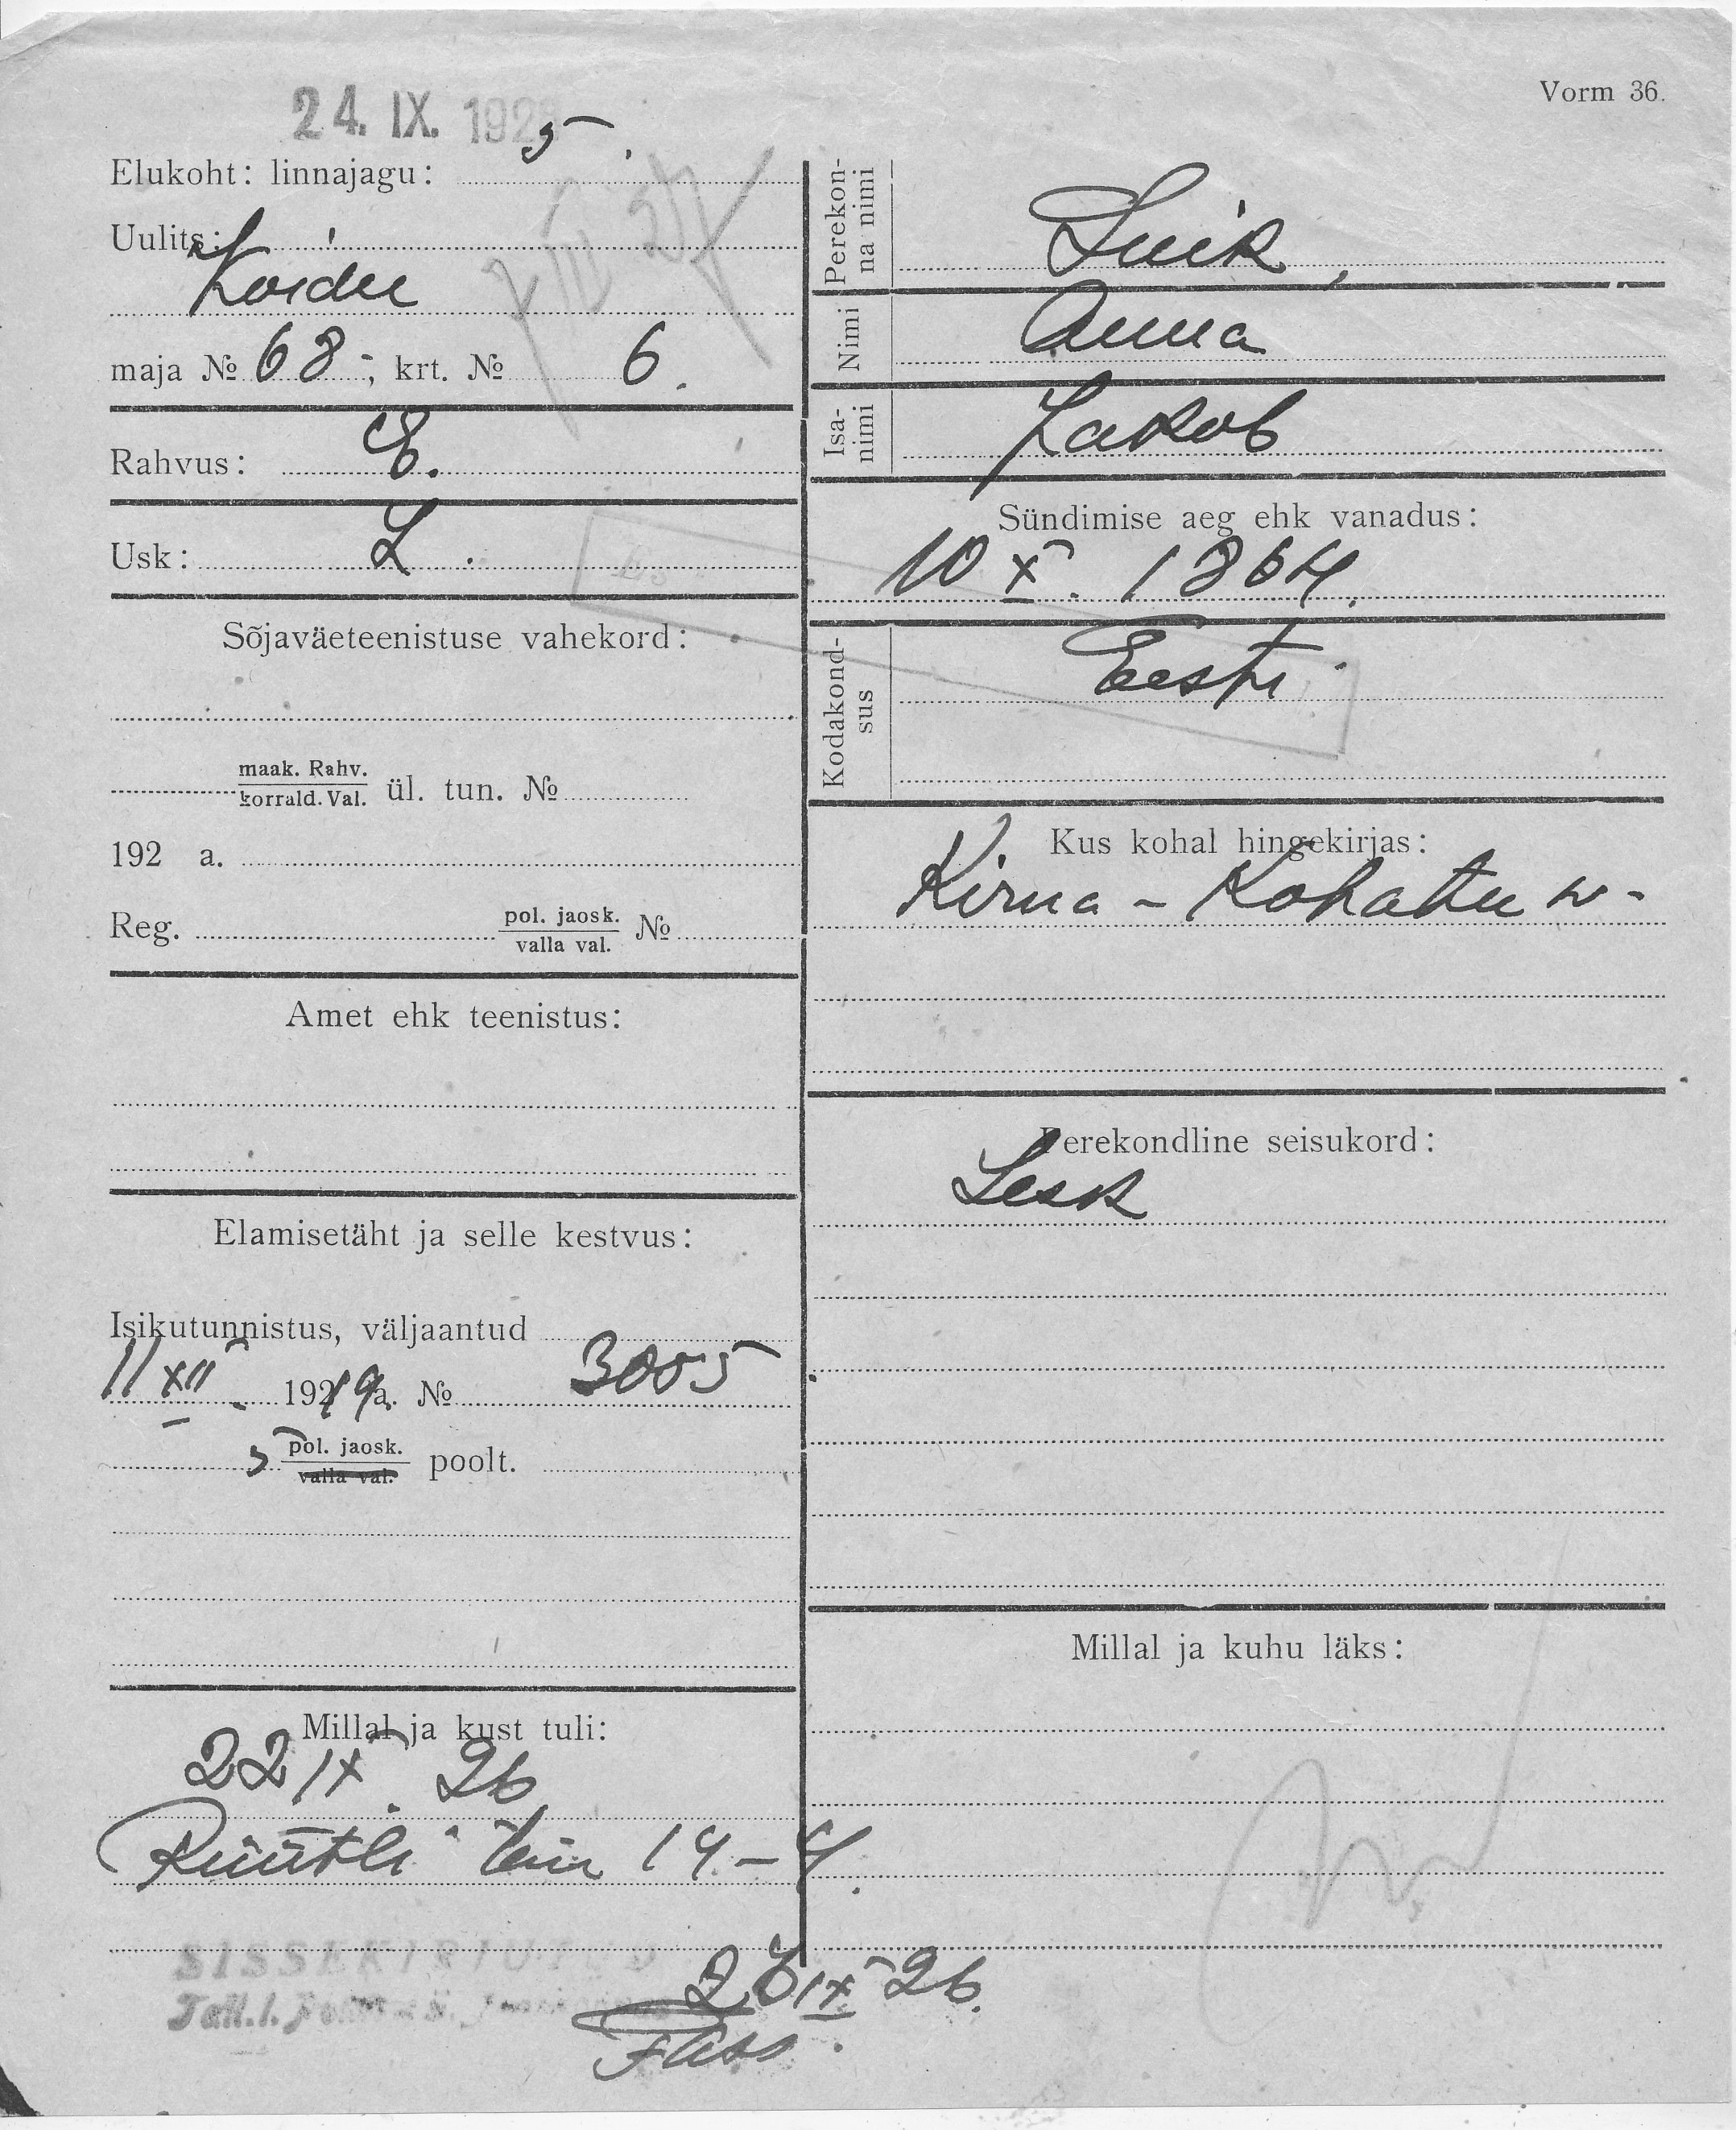 Vorm 36.
24. IX. 192
Elukoht: linnajagu: 5.
Uulits:
Koidu
maja № 68 ; krt. № 6.
Rahvus: E.
Usk: L.
Sõjaväeteenistuse vahekord:
maak. Rahv.
korrald. Val. ül. tun. №
192 a.
Reg. pol. jaosk. №
valla val.
Amet ehk teenistus:
Elamisetäht ja selle kestvus:
Isikutunnistus, väljaantud
11 XII. 1919 a. № 3005
5 pol. jaosk. poolt.
valla val.
Millal ja kust tuli:
22 IX. 26
Rüütli tän 14-4.
SISSEKIRJUTUD
Tall. 1.
Perekon-
na nimi
Luik,
Nimi
Anna
Isa-
nimi
Jakob
Sündimise aeg ehk vanadus:
10 X. 1864.
Kodakond-
sus
Eesti
Kus kohal hingekirjas:
Kirna - Kohatu w-
Perekondline seisukord:
Lesk
Millal ja kuhu läks:
IX 26.